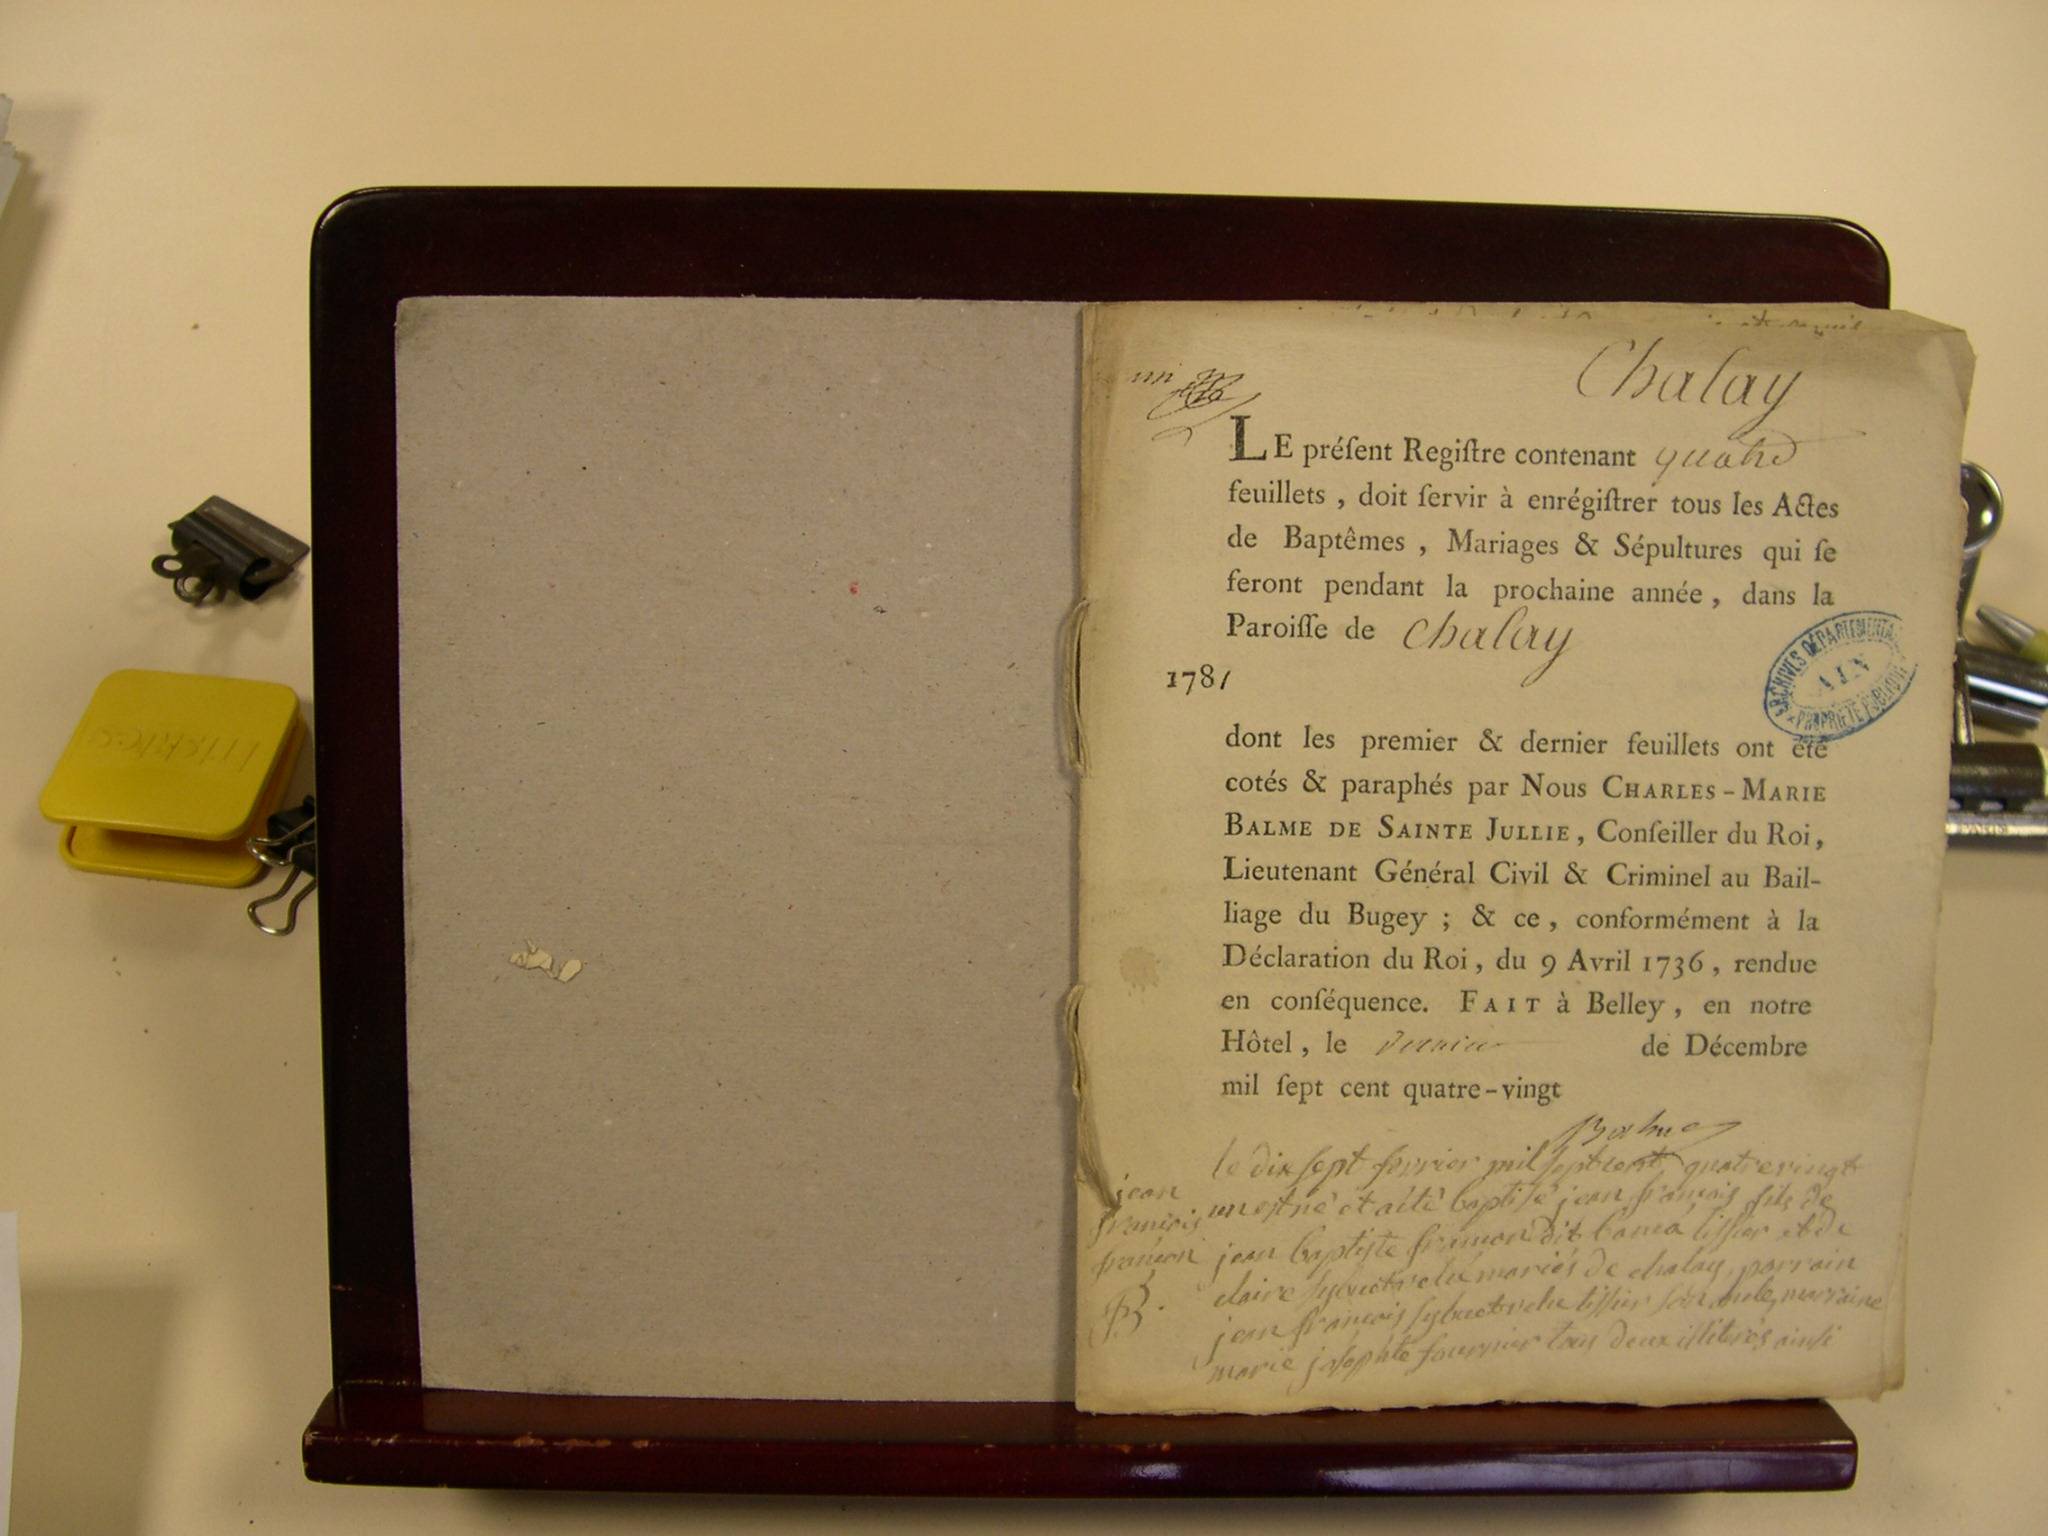 Chalay
un
LE préſent Regiſtre contenant quatre
feuillets , doit ſervir à enrégiſtrer tous les Actes
de Baptêmes , Mariages & Sépultures qui ſe
feront pendant la prochaine année , dans la
Paroiſſe de Chalay
1781
ARCHIVES DÉPARTEMENTALES
AIN
PROPRIÉTÉ PUBLIQUE
dont les premier & dernier feuillets ont été
cotés & paraphés par Nous CHARLES-MARIE
BALME DE SAINTE JULLIE, Conſeiller du Roi,
Lieutenant Général Civil & Criminel au Bail-
liage du Bugey ; & ce, conformément à la
Déclaration du Roi, du 9 Avril 1736, rendue
en conſéquence. FAIT à Belley, en notre
Hôtel, le dernier de Décembre
mil ſept cent quatre-vingt
Balme
jean
françois
françon
le dix sept fevrier mil sept cent quatre vingt
un est né et a été baptisé jean françois fils de
jean baptiste françon dit tissier et de
claire mariés de chalay, parrain
jean françois tissier son marraine
marie josephte fournier tous deux illiterés ainsi